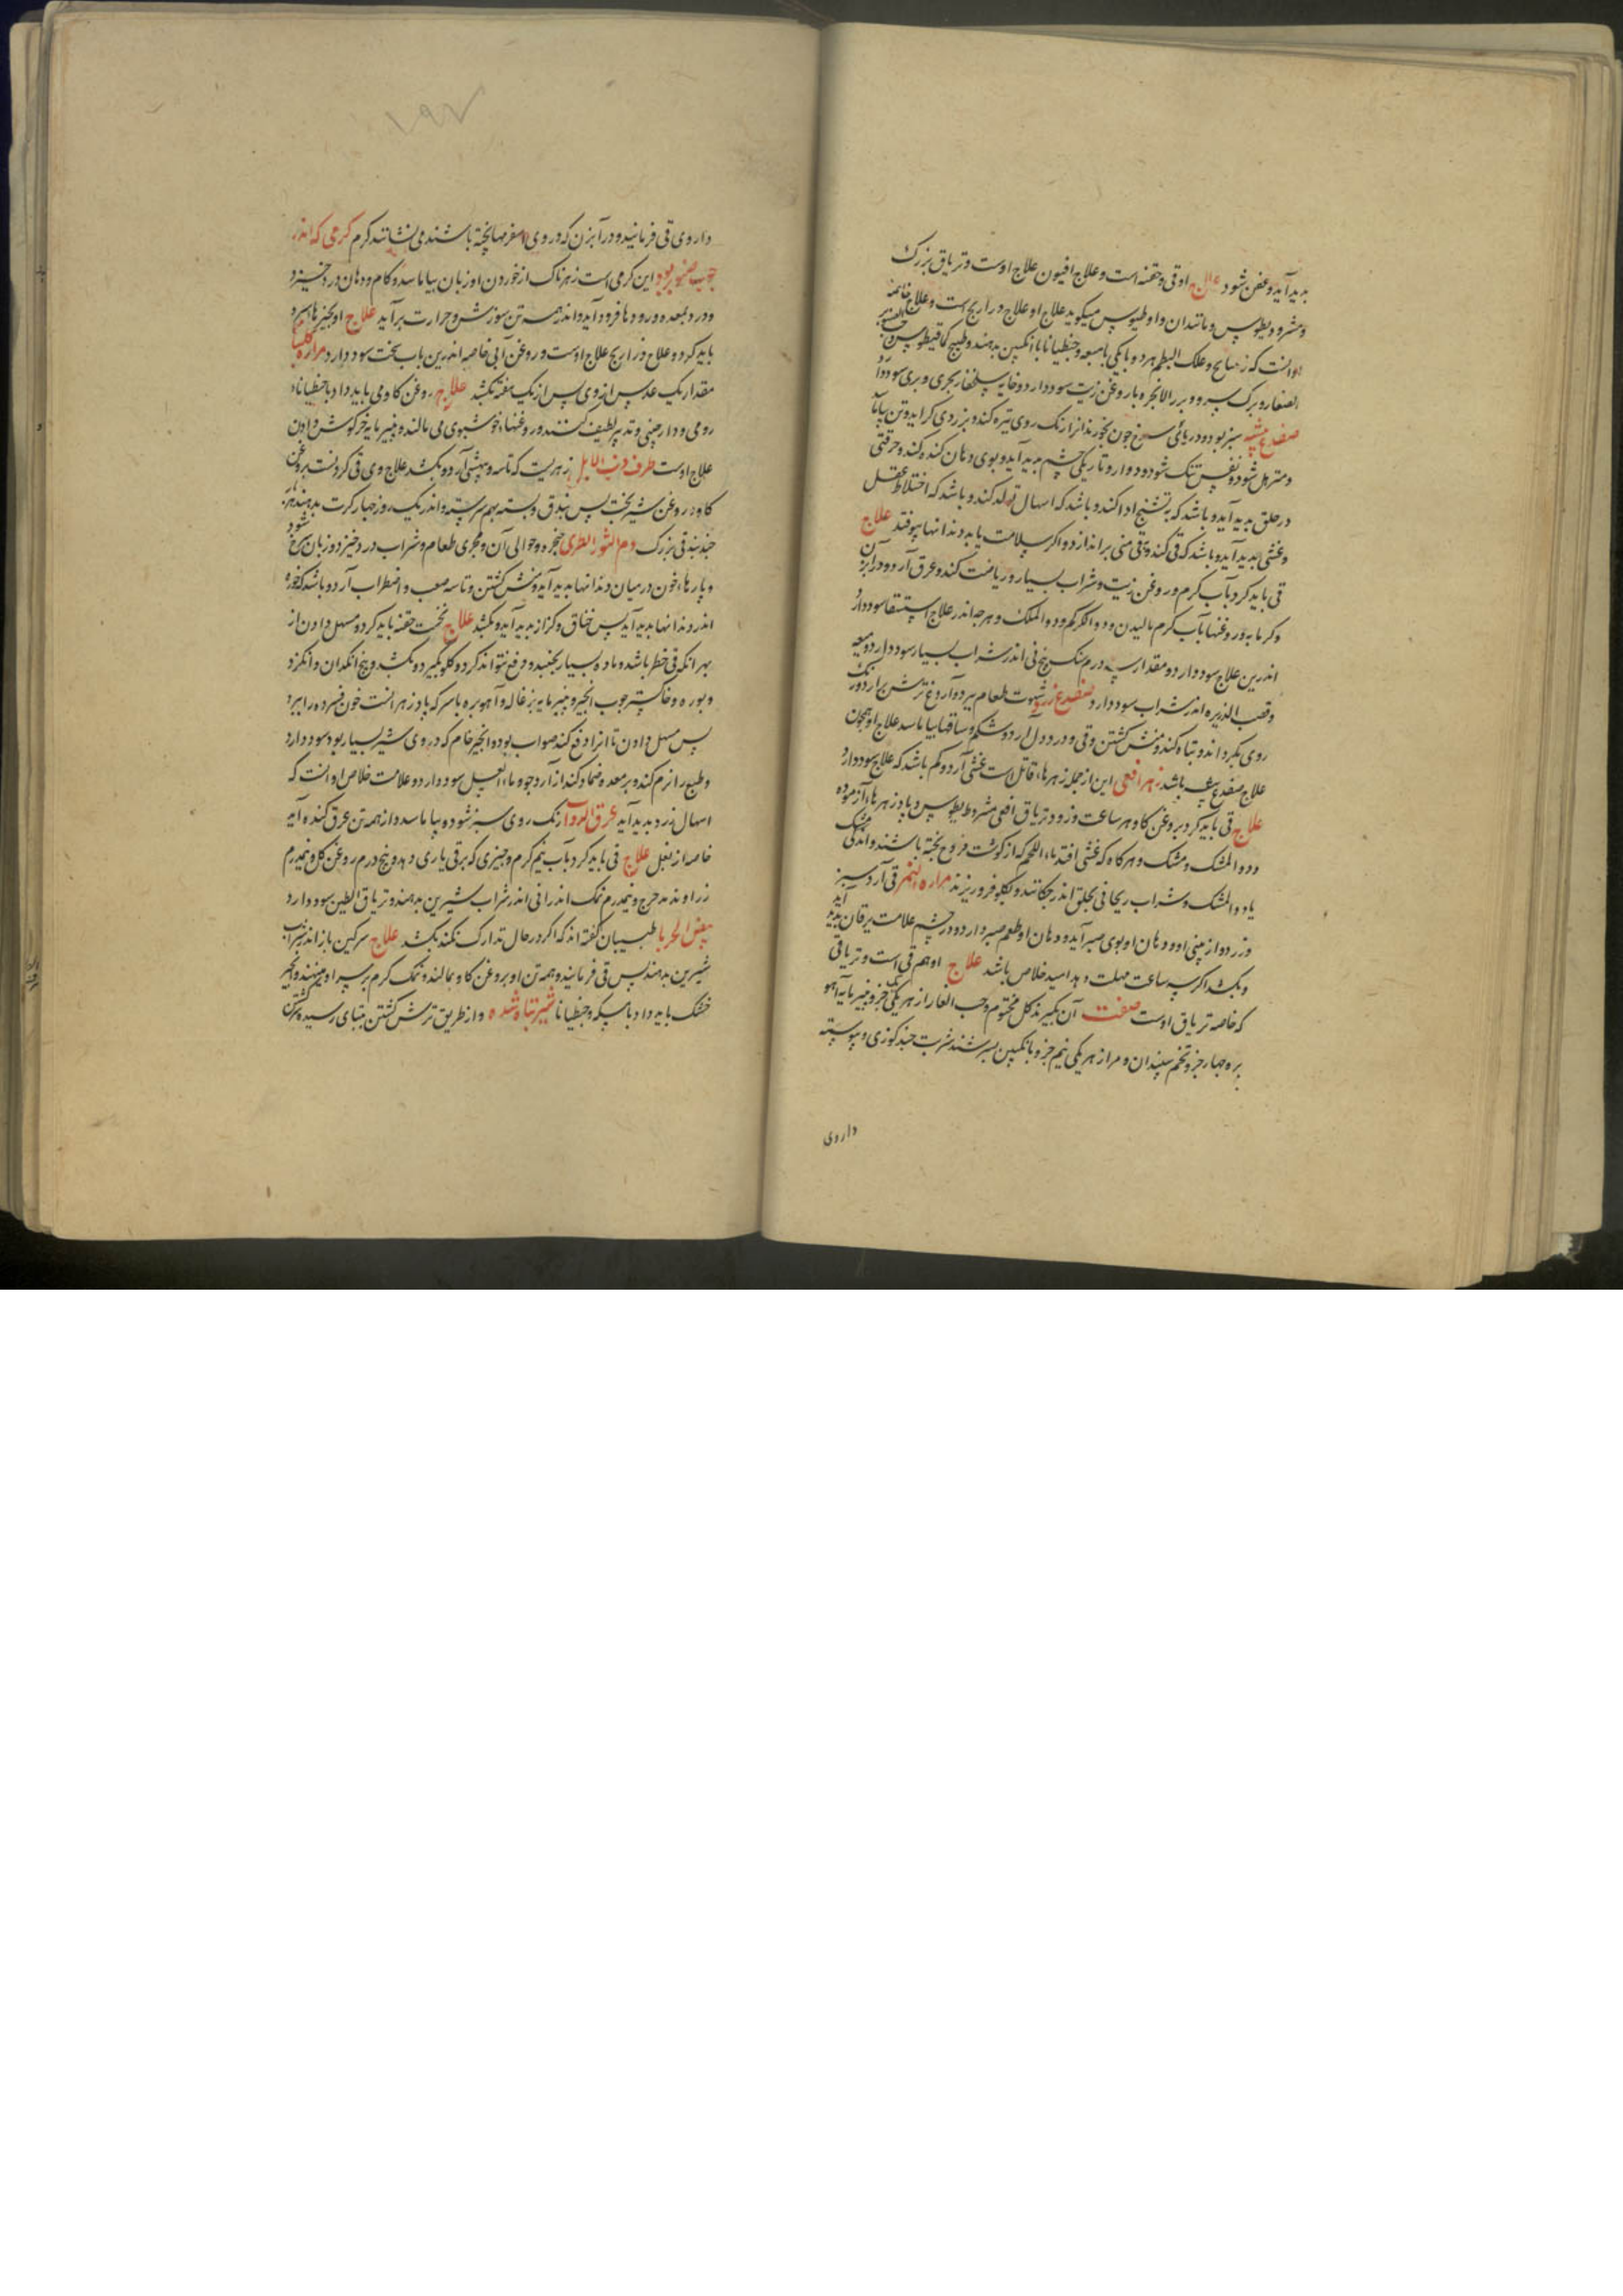 بدید آید و عفن شود علاج او قی و حقنه است و علاج افیون علاج اوست و تریاق بزرک
و مثرودیطوس و مانند ان و اوطیوس میکوید علاج او علاج دراریح است و علاج خاصه
او انست که و علک البطم هر دو یا یکی با میعه و جنطیانا با انکبین بدهند و طبیخ کمافیطوس و حب الصنوبر
الصغار و برک سرو و بزر الانجره با روغن زیت سود دارد و خایه سلحفاء بحری و بری سود دارد
ضفدع بیشه سبز بود و دریائی سرخ جون بخورند انرا رنک روی تیره کند و بزردی کراید و تن بیاماسد
و مترهل شود و نفس تنک شود و دوار و تاریکی چشم بدید آید و بوی دهان کنده کند و حرقتی
در حلق بدید آید و باشد که بتشنج ادا کند و باشد که اسهال تولد کند و باشد که اختلاط عقل
و غشی بدید آید و باشد که قی کند و قی منی براندازد و اکر سلامت یابد دندانها بیوفتد علاج
قی باید کرد بآب کرم و روغن زیت و شراب بسیار و ریاضت کند و عرق آرد و در ابزن
و کرمابه و روغنها بآب کرم مالیدن و دواء الکرکم و دواء الملک و هر جه اندر علاج استسقا سود دارد
اندرین علاج سود دارد و مقدار سه درم سنک بیخ نی اندر شراب بسیار سود دارد و میعه
و قصب الذریره اندر شراب سود دارد ضفدع زرد شهوت طعام ببرد و آروغ ترش برارد و رنک
روی بکرداند و تباه کند و منش کشتن و قی و درد دل آرد و شکم و ساقها بیاماسد علاج او همجون
علاج ضفدع بیشه باشد زهر افعی این از جمله زهرهاء قاتل است غشی آرد و کم باشد که علاج سود دارد
علاج قی باید کرد بروغن کاو هر ساعت و زود تریاق افعی مثرودیطوس و پادزهرهاء آزموده
و دواء المشک و مشک و هر کاه که غشی افتد ماء اللحم که از کوشت فروج بخته باشند و اندکی مشک
یا دواء المشک و شراب ریحانی بحلق اندر جکانند و بکلو فرو ریزند مراره النمر قی آرد سبز
و زرد و از بینی او و دهان او بوی صبر آید و دهان او طعم صبر دارد و در چشم علامت یرقان بدید آید
و بکشد اکر سه ساعت مهلت دهد امید خلاص باشد علاج او هم قی است و تریاقی
که خاصه تریاق اوست صفت آن بکیرند کل مختوم و حب الغار از هر یکی جزو بنیر مایه آهو
بره جهار جزو تخم سپندان و مر از هر یکی نیم جزو بانکبین بسرشند شربت جند کوزی و پیوسته
داروی
۱۹۲
داروی قی فرمانید و در آبزن که در وی اسفرمها پخته باشند می نشانند کرم کرمی که اندر
چوب صنوبر بود این کرمی است زهرناک از خوردن او زبان بیاماسد و کام و دهان درد خیزد
و درد بمعده و رودها فرود آید و اندر همه تن سوزش و حرارت بر آید علاج او بجیزهای سرد
باید کرد و علاج ذراریح علاج اوست و روغن آبی خاصه اندرین باب سخت سود دارد مراره کلب
مقدار یک عدس از وی پس از یک هفته بکشد علاج روغن کاو می باید داد با جنطیاناء
رومی و دارجینی و تدبیر لطیف کنند و روغنهاء خوشبوی می مالند و پنیر مایه خرکوش دادن
علاج اوست طرف ذنب الایل زهریست که تاسه و بیهشی آرد و بکشد علاج وی قی کردنست بروغن
کاو و روغن شیربخت پس بندق و پسته بهم سرشته و اندر یک روز جهار کرت بدهند هر
جند بندقی بزرک دم الثور الطری حنجره و حوالی آن و مجری طعام و شراب درد خیزد و زبان سرخ شود
و پارهاء خون در میان دندانها بدید آید و منش کشتن و تاسه صعب و اضطراب آرد و باشد که خوره
اندر دندانها بدید آید پس خناق و کزاز بدید آید و بکشد علاج نخست حقنه باید کرد و مسهل دادن از
بهر انکه قی خطر باشد و ماده بسیار بجنبد و دفع نتواند کرد و کلو بکیرد و بکشد و بیخ انکدان و انکزد
و بوره و خاکستر جوب انجیر و پنیر مایه بزغاله و آهو بره با سرکه پادزهر انست خون فسرده را ببرد
پس مسهل دادن تا انرا دفع کند صواب بود و انجیر خام که در وی شیر بسیار بود سود دارد
و طبع را نرم کند و بر معده ضماد کند از آرد جو و ماء العسل سود دارد و علامت خلاص او انست که
اسهال زرد بدید آید عرق الدواب رنک روی سبز شود و بیاماسد و از همه تن عرق کنده آید
خاصه از بغل علاج قی باید کرد بآب نیم کرم و چیزی که بر قی یاری دهد و پنج درم روغن کل و نیمدرم
زراوند مدحرج و نیمدرم نمک اندرانی اندر شراب شیرین بدهند و تریاق الطین سود دارد
بیض الحربا طبیبان کفته اند که اکر در حال تدارک نکند بکشد علاج سرکین باز اندر شراب
شیرین بدهند پس قی فرمانید و همه تن او بروغن کاو بمالند و نمک کرم بر سر او می نهند و انجیر
خشک باید داد با مسکه و جنطیانا شیر تباه شده و از طریق ترش کشتن بتباهی رسیده